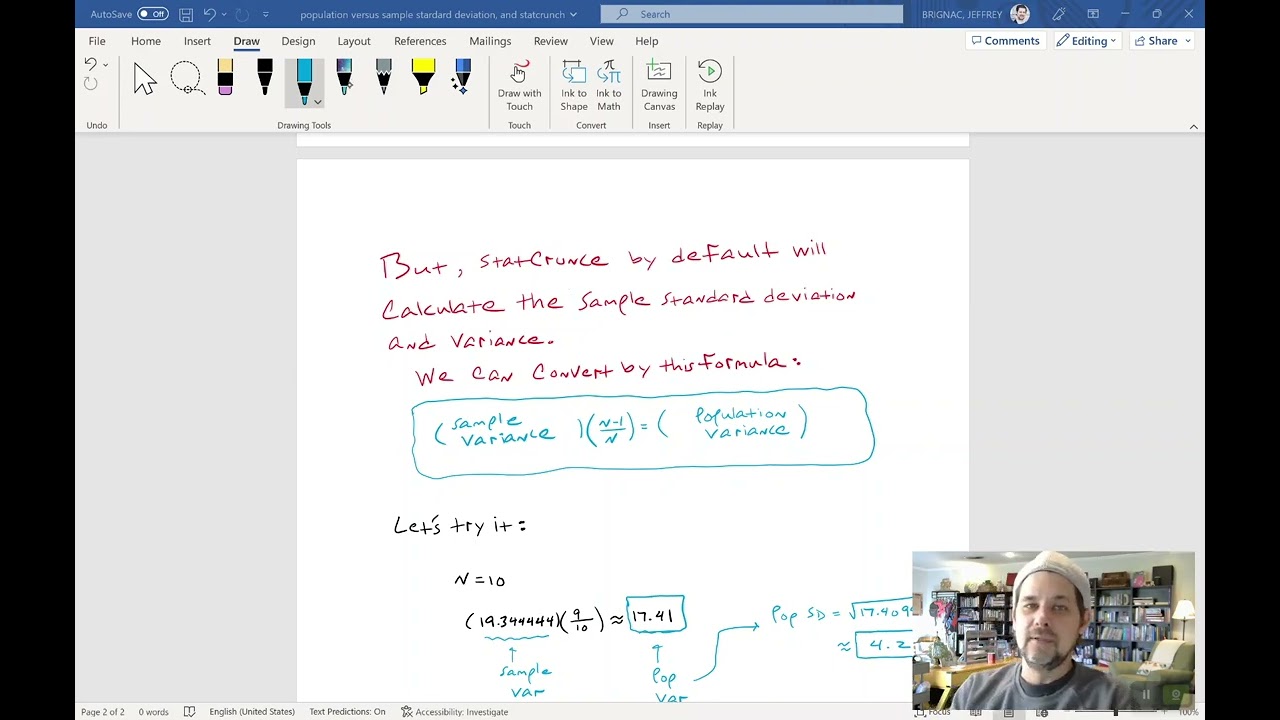 AutoSave Off population versus sample stardard deviation, and statcrunch Search BRIGNAC, JEFFREY
File Home Insert Draw Design Layout References Mailings Review View Help Comments Editing Share
Draw with Touch
Ink to Shape
Ink to Math
Drawing Canvas
Ink Replay
Undo Drawing Tools Touch Convert Insert Replay
But, StatCrunce by default will
Calculate the sample standard deviation
and variance.
We can convert by this formula:
(sample variance)(N-1/N) = (population variance)
Let's try it:
N = 10
(19.344444)(9/10) ≈ 17.41
Pop SD = √17.409
≈ 4.2
↑ sample var
↑ Pop var
Page 2 of 2 0 words English (United States) Text Predictions: On Accessibility: Investigate Focus 100%